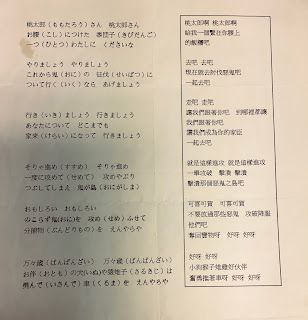 桃太郎（ももたろう）さん　桃太郎さん
お腰（こし）につけた　黍団子（きびだんご）
一つ（ひとつ）わたしに　くださいな
やりましょう　やりましょう
これから鬼（おに）の　征伐（せいばつ）に
ついて行く（いく）なら　あげましょう
行き（いき）ましょう　行きましょう
あなたについて　どこまでも
家来（けらい）になって　行きましょう
そりゃ進め（すすめ）　そりゃ進め
一度に攻めて（せめて）　攻めやぶり
つぶしてしまえ　鬼が島（おにがしま）
おもしろい　おもしろい
のこらず鬼(おに)を　攻め（せめ）ふせて
分捕物（ぶんどりもの）を　えんやらや
万々歳（ばんばんざい）　万々歳（ばんばんざい）
お伴（おとも）の犬(いぬ)や猿雉子（さるきじ）は
勇んで（いさんで）車（くるま）を　えんやらや
桃太郎啊 桃太郎啊
給我一個繫在你腰上
的飯糰吧
去吧 去吧
現在就去討伐惡鬼吧
一起去吧
走吧 走吧
讓我們跟著你吧 到哪裡都讓
我們跟著你吧
讓我們成為你的家臣
一起去吧
就是這樣進攻 就是這樣進攻
一舉攻破 擊潰 擊潰
擊潰那個惡鬼之島吧
可喜可賀 可喜可賀
不要放過那些惡鬼 攻破降服
他們吧
奪回寶物呀 好呀 好呀
好呀 好呀
小狗猴子雉雞好伙伴
奮勇推著車呀 好呀 好呀